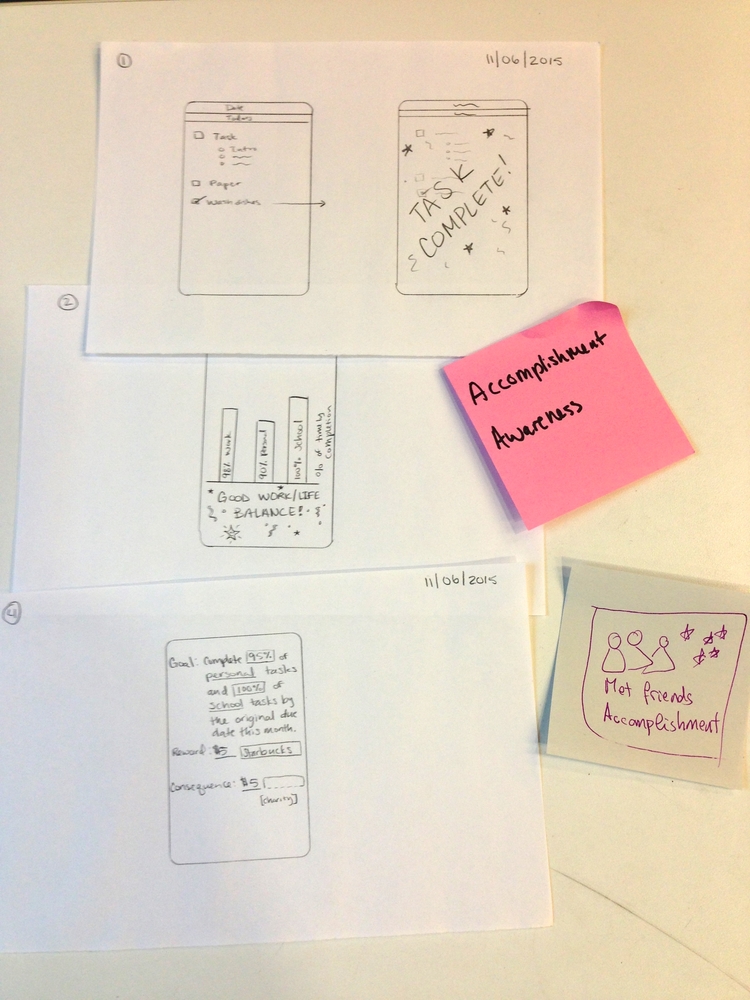 1
11/06/2015
Date
Todos
Task
Intro
Paper
Wash dishes
TASK
COMPLETE!
2
98% Work
90% Personal
100% School
% of timely
completion
GOOD WORK/LIFE
BALANCE!
Accomplishment
Awareness
4
11/06/2015
Goal: Complete 95% of
personal tasks
and 100% of
school tasks by
the original due
date this month.
Reward: $5 Starbucks
Consequence: $5
[charity]
Met friends
Accomplishment